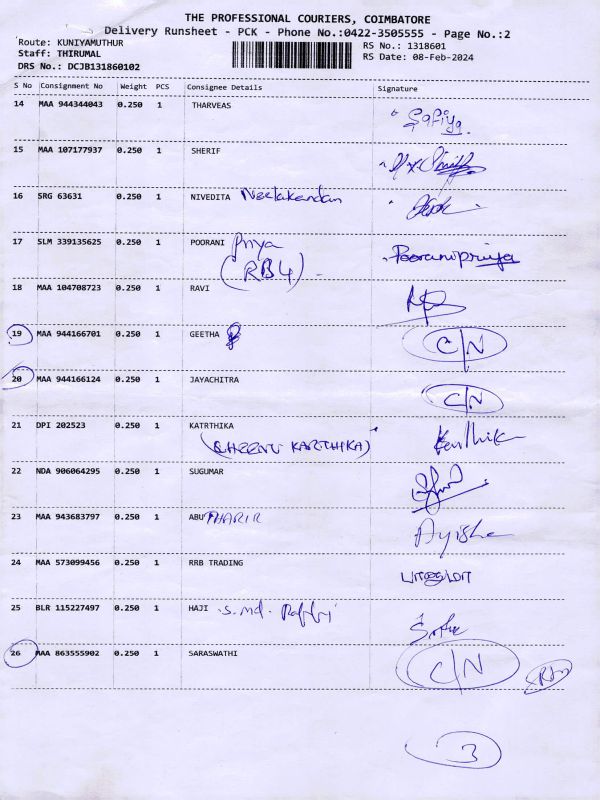 THE PROFESSIONAL COURIERS, COIMBATORE
Delivery Runsheet - PCK - Phone No.:0422-3505555 - Page No.:2
Route: KUNIYAMUTHUR
RS No.: 1318601
Staff: THIRUMAL
RS Date: 08-Feb-2024
DRS No.: DCJB131860102
S No Consignment No Weight PCS Consignee Details Signature
14 MAA 944344043 0.250 1 THARVEAS Safiya
15 MAA 107177937 0.250 1 SHERIF
16 SRG 63631 0.250 1 NIVEDITA Neelakandan
17 SLM 339135625 0.250 1 POORANI Priya Pooranipriya
(RB4)
18 MAA 104708723 0.250 1 RAVI
19 MAA 944166701 0.250 1 GEETHA C/N
20 MAA 944166124 0.250 1 JAYACHITRA C/N
21 DPI 202523 0.250 1 KATRTHIKA Karthika
KARTHIKA)
22 NDA 906064295 0.250 1 SUGUMAR
23 MAA 943683797 0.250 1 ABU Ayisha
24 MAA 573099456 0.250 1 RRB TRADING
25 BLR 115227497 0.250 1 HAJI S. Md.
26 MAA 863555902 0.250 1 SARASWATHI C/N
3